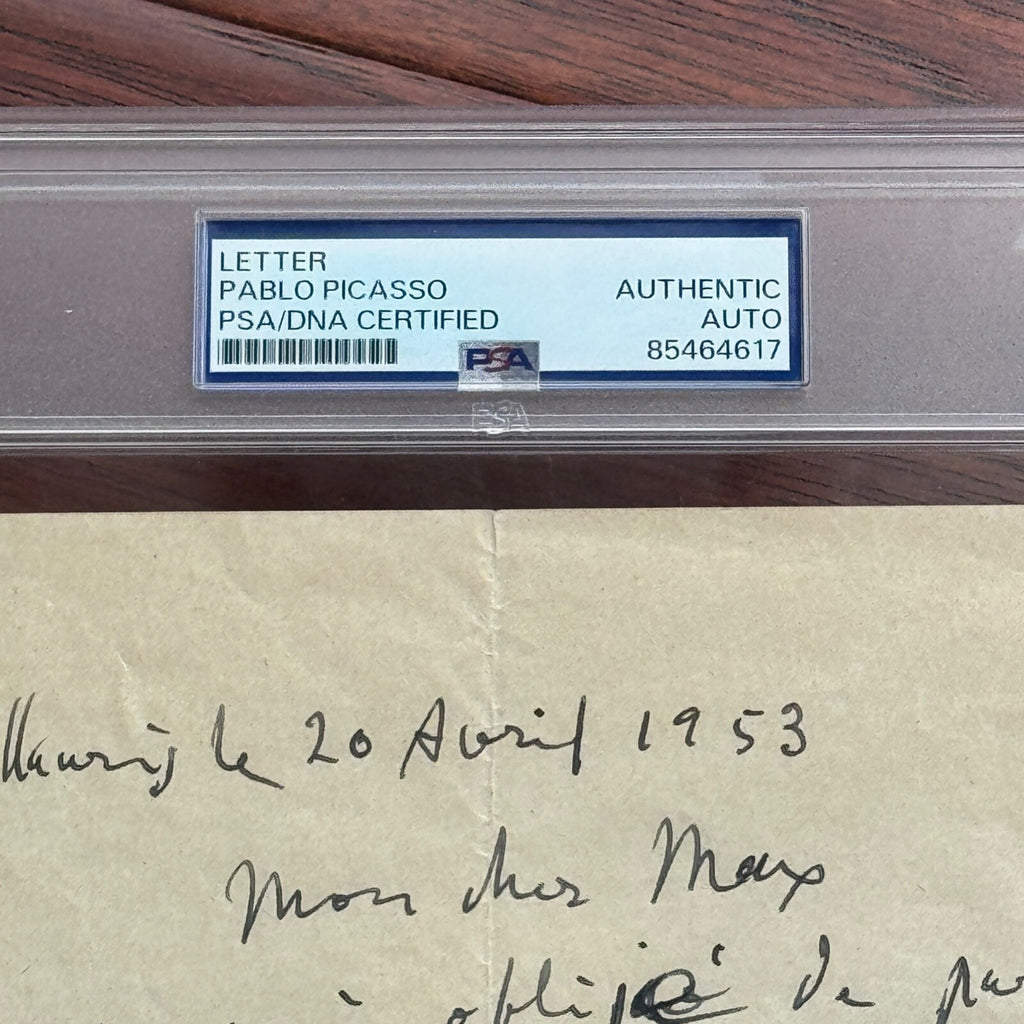 LETTER
PABLO PICASSO
AUTHENTIC
PSA/DNA CERTIFIED
AUTO
PSA
85464617
PSA
le 20 Avril 1953
Mon cher Max
obligé de